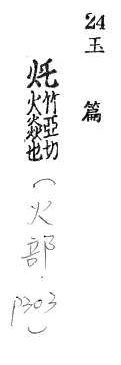 24
玉篇
灹竹亞切
火焱也
(火部．
p303)